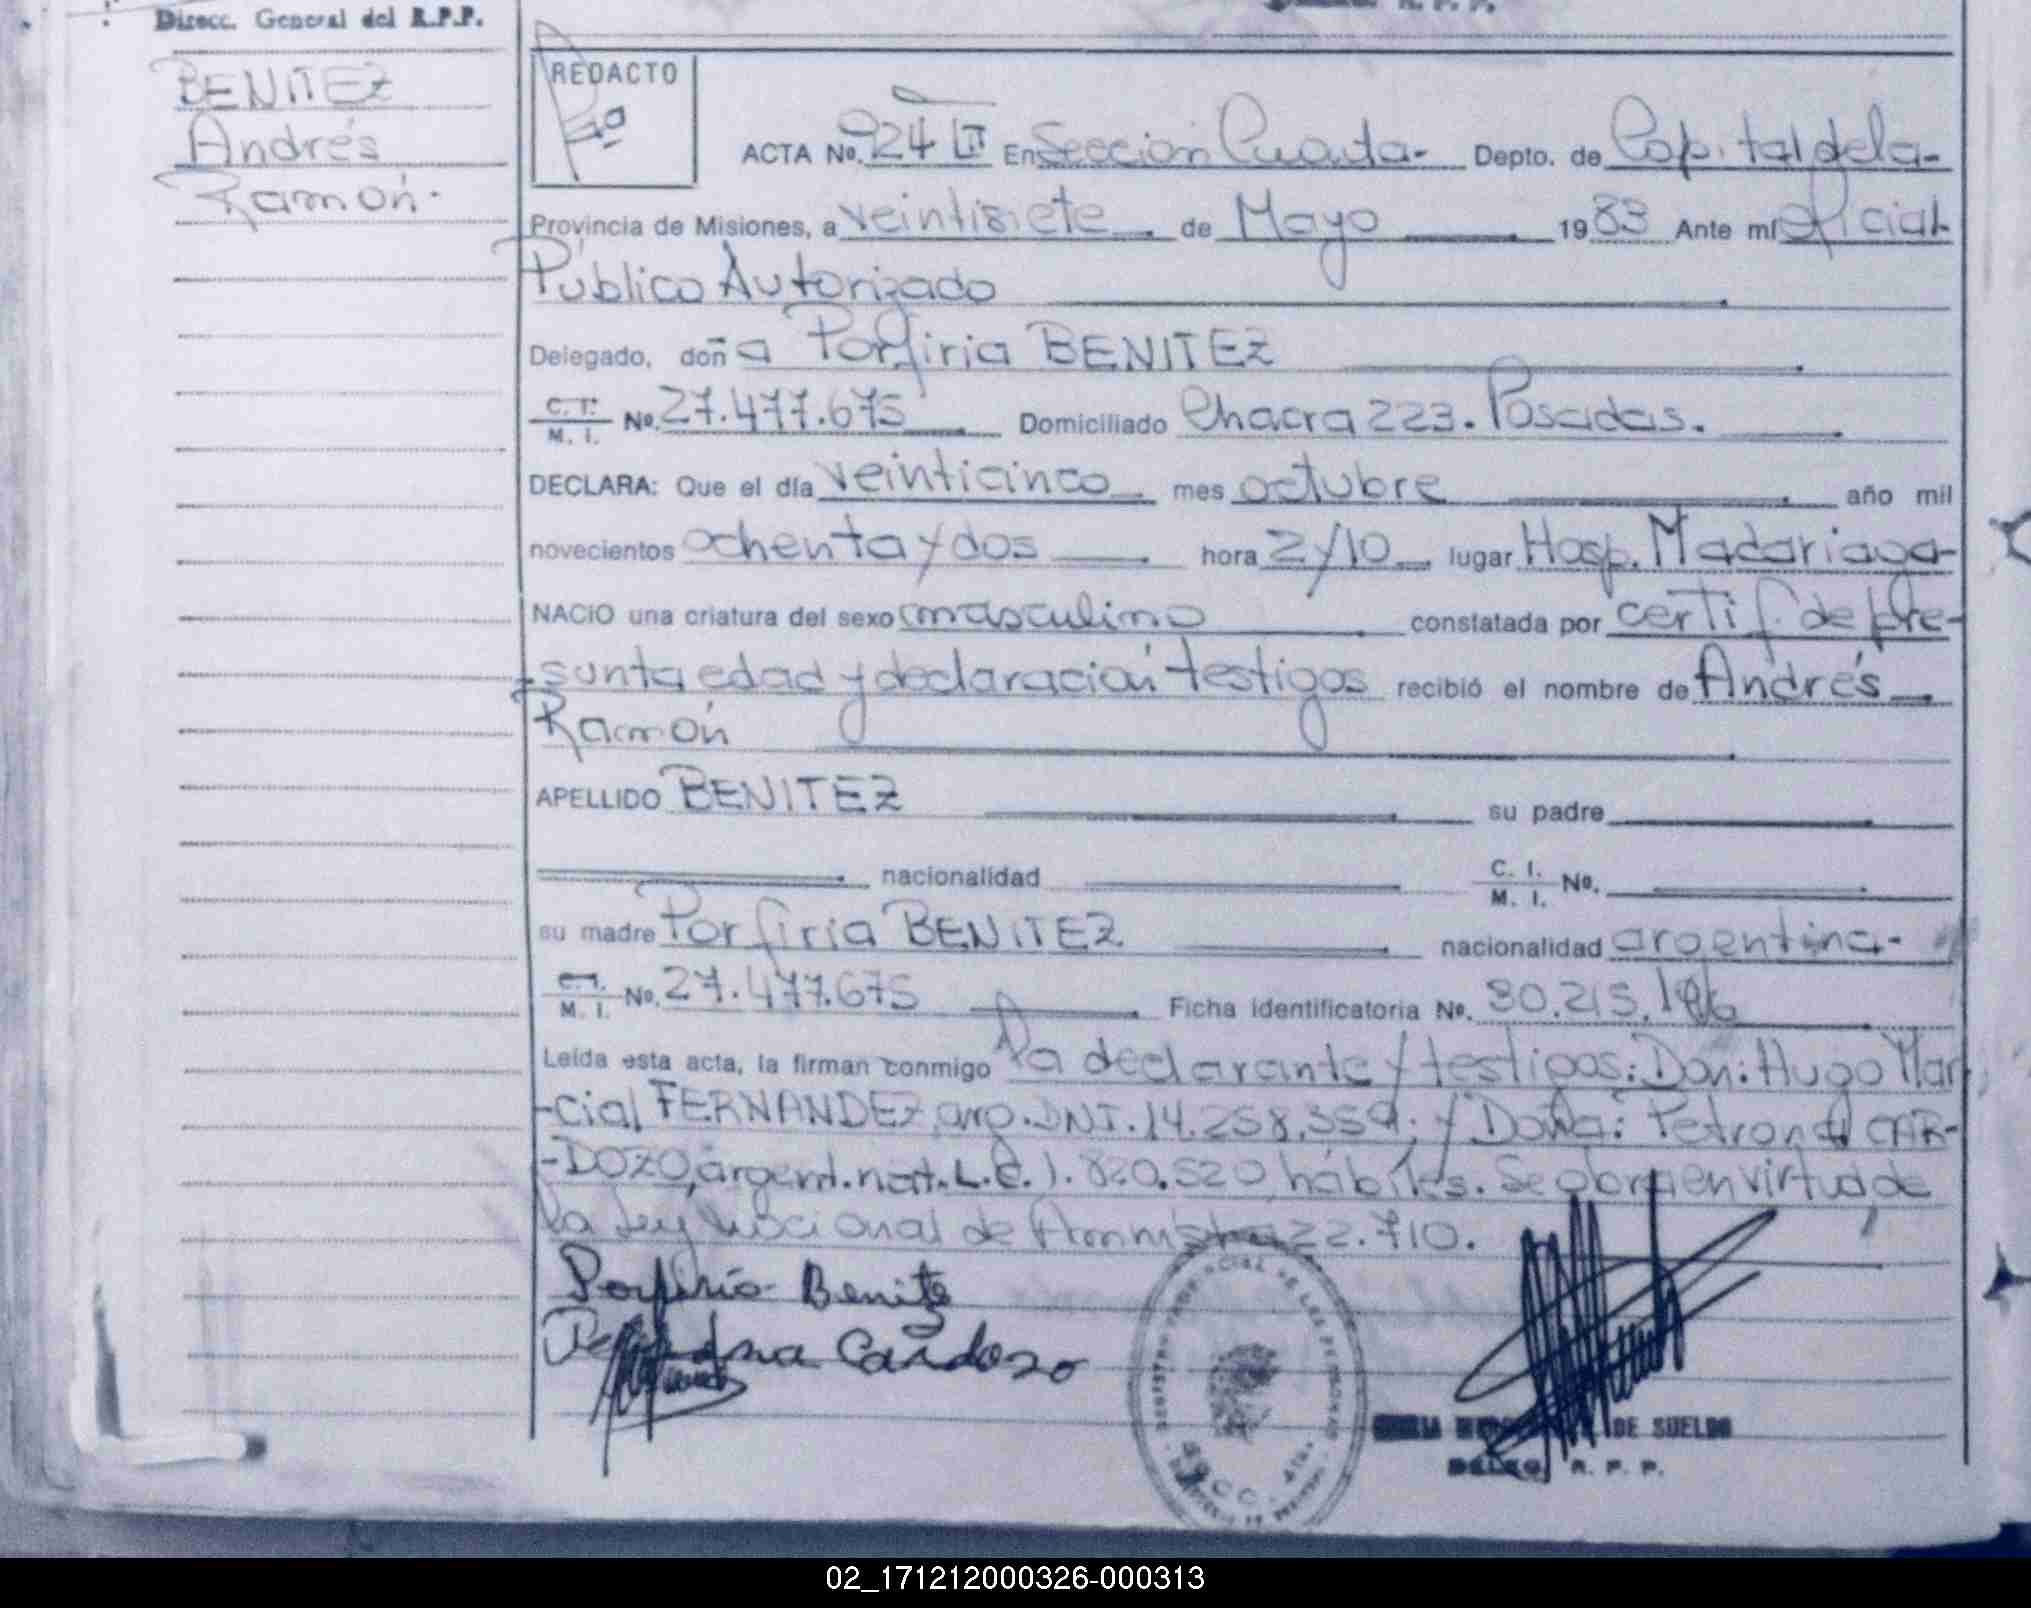 Direcc. General del R.P.P.
R. P. P.
BENITEZ
Andrés
Ramón.
REDACTO
ACTA No. 924 En Sección Cuarta- Depto. de Capital de la-
Provincia de Misiones, a veintisiete de Mayo 1983 Ante mí oficial
Público Autorizado
Delegado, doña Porfiria BENITEZ
C. I. M. I. No. 27.477.675 Domiciliado Chacra 223. Posadas.
DECLARA: Que el día veinticinco mes octubre año mil
novecientos ochenta y dos hora 2/10 lugar Hosp. Madariaga-
NACIO una criatura del sexo masculino constatada por certif. de pre-
-sunta edad y declaración testigos recibió el nombre de Andrés
Ramón
APELLIDO BENITEZ su padre
nacionalidad C. I. M. I. No.
su madre Porfiria BENITEZ nacionalidad argentina-
C. I. M. I. No. 27.477.675 Ficha identificatoria No. 30.215.
Leída esta acta, la firman conmigo la declarante y testigos: Don: Hugo Mar
-cial FERNANDEZ, arg. DNI. 14.258.359; y Doña: Petrona CAR-
-DOZO, argent. nat. L.C. 1.820.520 hábiles. Se obra en virtud de
la Ley Nacional de Amnistía 22.710.
Porfiria Benite
Petrona Cardozo
DE SUELDO
DELEG. R. P. P.
02_171212000326-000313